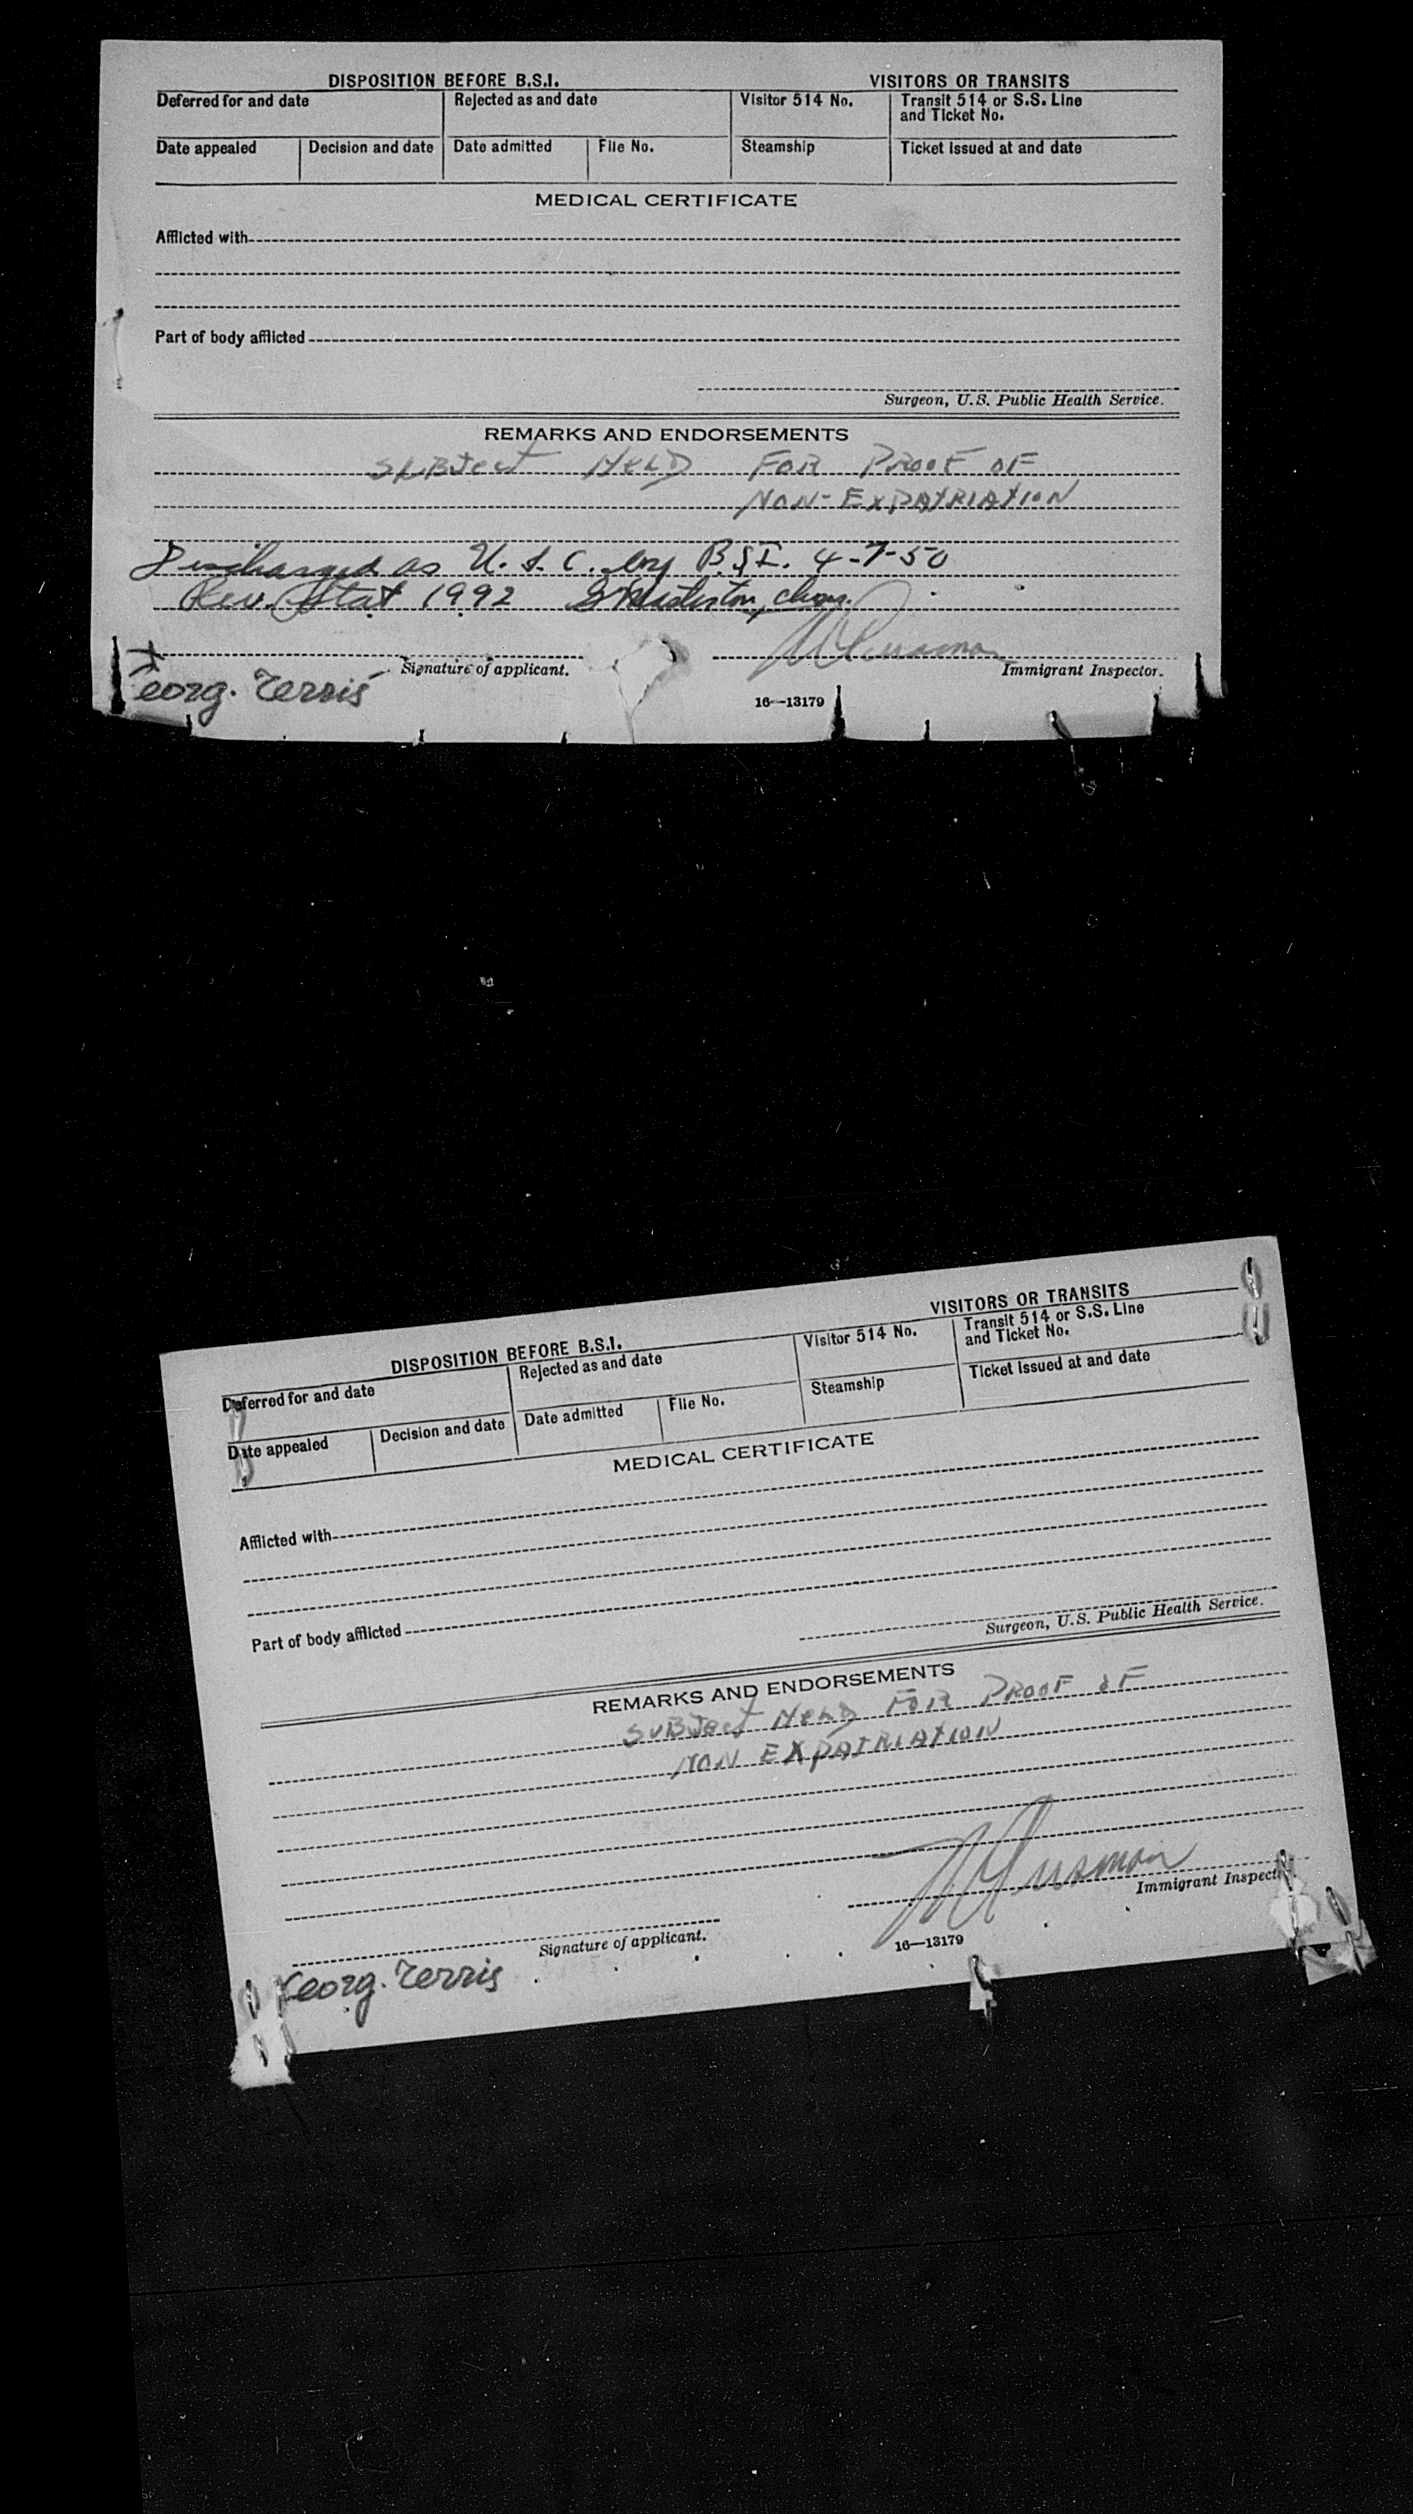 DISPOSITION BEFORE B.S.I. VISITORS OR TRANSITS
Deferred for and date Rejected as and date Visitor 514 No. Transit 514 or S.S. Line
and Ticket No.
Date appealed Decision and date Date admitted File No. Steamship Ticket issued at and date
MEDICAL CERTIFICATE
Afflicted with
Part of body afflicted
Surgeon, U.S. Public Health Service.
REMARKS AND ENDORSEMENTS
SUBJECT HELD FOR PROOF OF
NON-EXPATRIATION
Discharged as U.S.C. by B.S.I. 4-7-50
Rev. Stat 1992
Signature of applicant. Immigrant Inspector.
Georg. Terris
16—13179
DISPOSITION BEFORE B.S.I. VISITORS OR TRANSITS
Deferred for and date Rejected as and date Visitor 514 No. Transit 514 or S.S. Line
and Ticket No.
Date appealed Decision and date Date admitted File No. Steamship Ticket issued at and date
MEDICAL CERTIFICATE
Afflicted with
Part of body afflicted
Surgeon, U.S. Public Health Service.
REMARKS AND ENDORSEMENTS
SUBJECT HELD FOR PROOF OF
NON EXPATRIATION
Immigrant Inspect
Signature of applicant. 16—13179
Georg. Terris